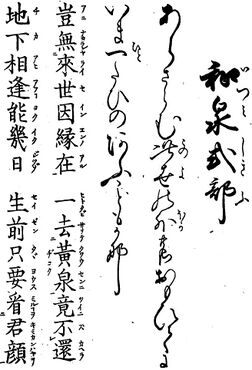 和泉式部
あらさらむ此世の外のおもひてに
いま一たひのあふこともか那
豈無來世因縁在 一去黃泉竟不還
地下相逢能幾日 生前只要看君顔